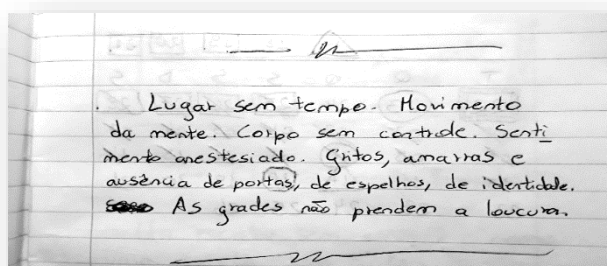 . Lugar sem tempo. Movimento
da mente. Corpo sem controle. Senti
mento anestesiado. Gritos, amarras e
ausência de portas, de espelhos, de identidade.
As grades não prendem a loucura.